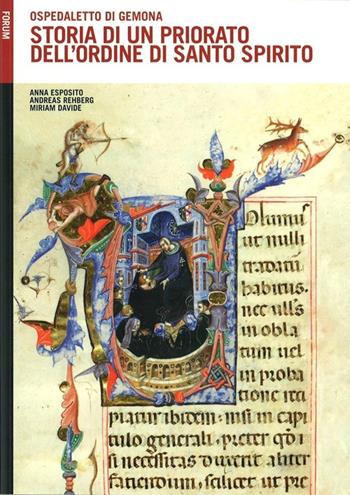 FORUM
OSPEDALETTO DI GEMONA
STORIA DI UN PRIORATO
DELL'ORDINE DI SANTO SPIRITO
ANNA ESPOSITO
ANDREAS REHBERG
MIRIAM DAVIDE
olumus
ut nulli
tradatur
habitus.
nec ulli's
in obla
tum uel
in proba
tione reci
piatur ibidem: nisi in capi
tulo generali. preter
si necessitas aliter
faciendum, scilicet ut pre